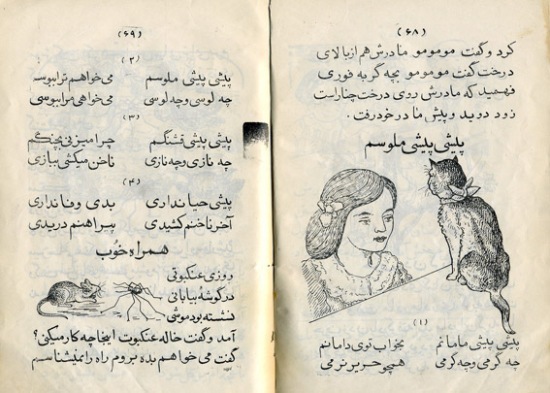 (۶۸)
کرد و گفت مومومو مادرش هم از بالای
درخت گفت مومومو بچه گربه فوری
فهمید که مادرش روی درخت چنار است
زود دوید و پیش مادر خود رفت.
پیشی پیشی ملوسم
(۱)
پیشی پیشی مامانم بخواب توی دامانم
چه گرمی و چه گرمی همچو حریر نرمی
(۶۹)
(۲)
پیشی پیشی ملوسم می خواهم ترا ببوسم
چه لوسی و چه لوسی می خواهی مرا ببوسی
(۳)
پیشی پیشی قشنگم چرا میزنی بچنگم
چه نازی و چه نازی ناخن میکشی ببازی
(۴)
پیشی حیا نداری بدی وفا نداری
آخر ناخنم کشیدی پیراهنم دریدی
همراه خوب
روزی عنکبوتی
در گوشه بیابانی
نشسته بود موشی
آمد و گفت خاله عنکبوت اینجا چه کار میکنی؟
گفت می خواهم بده بروم راه را نمیشناسم